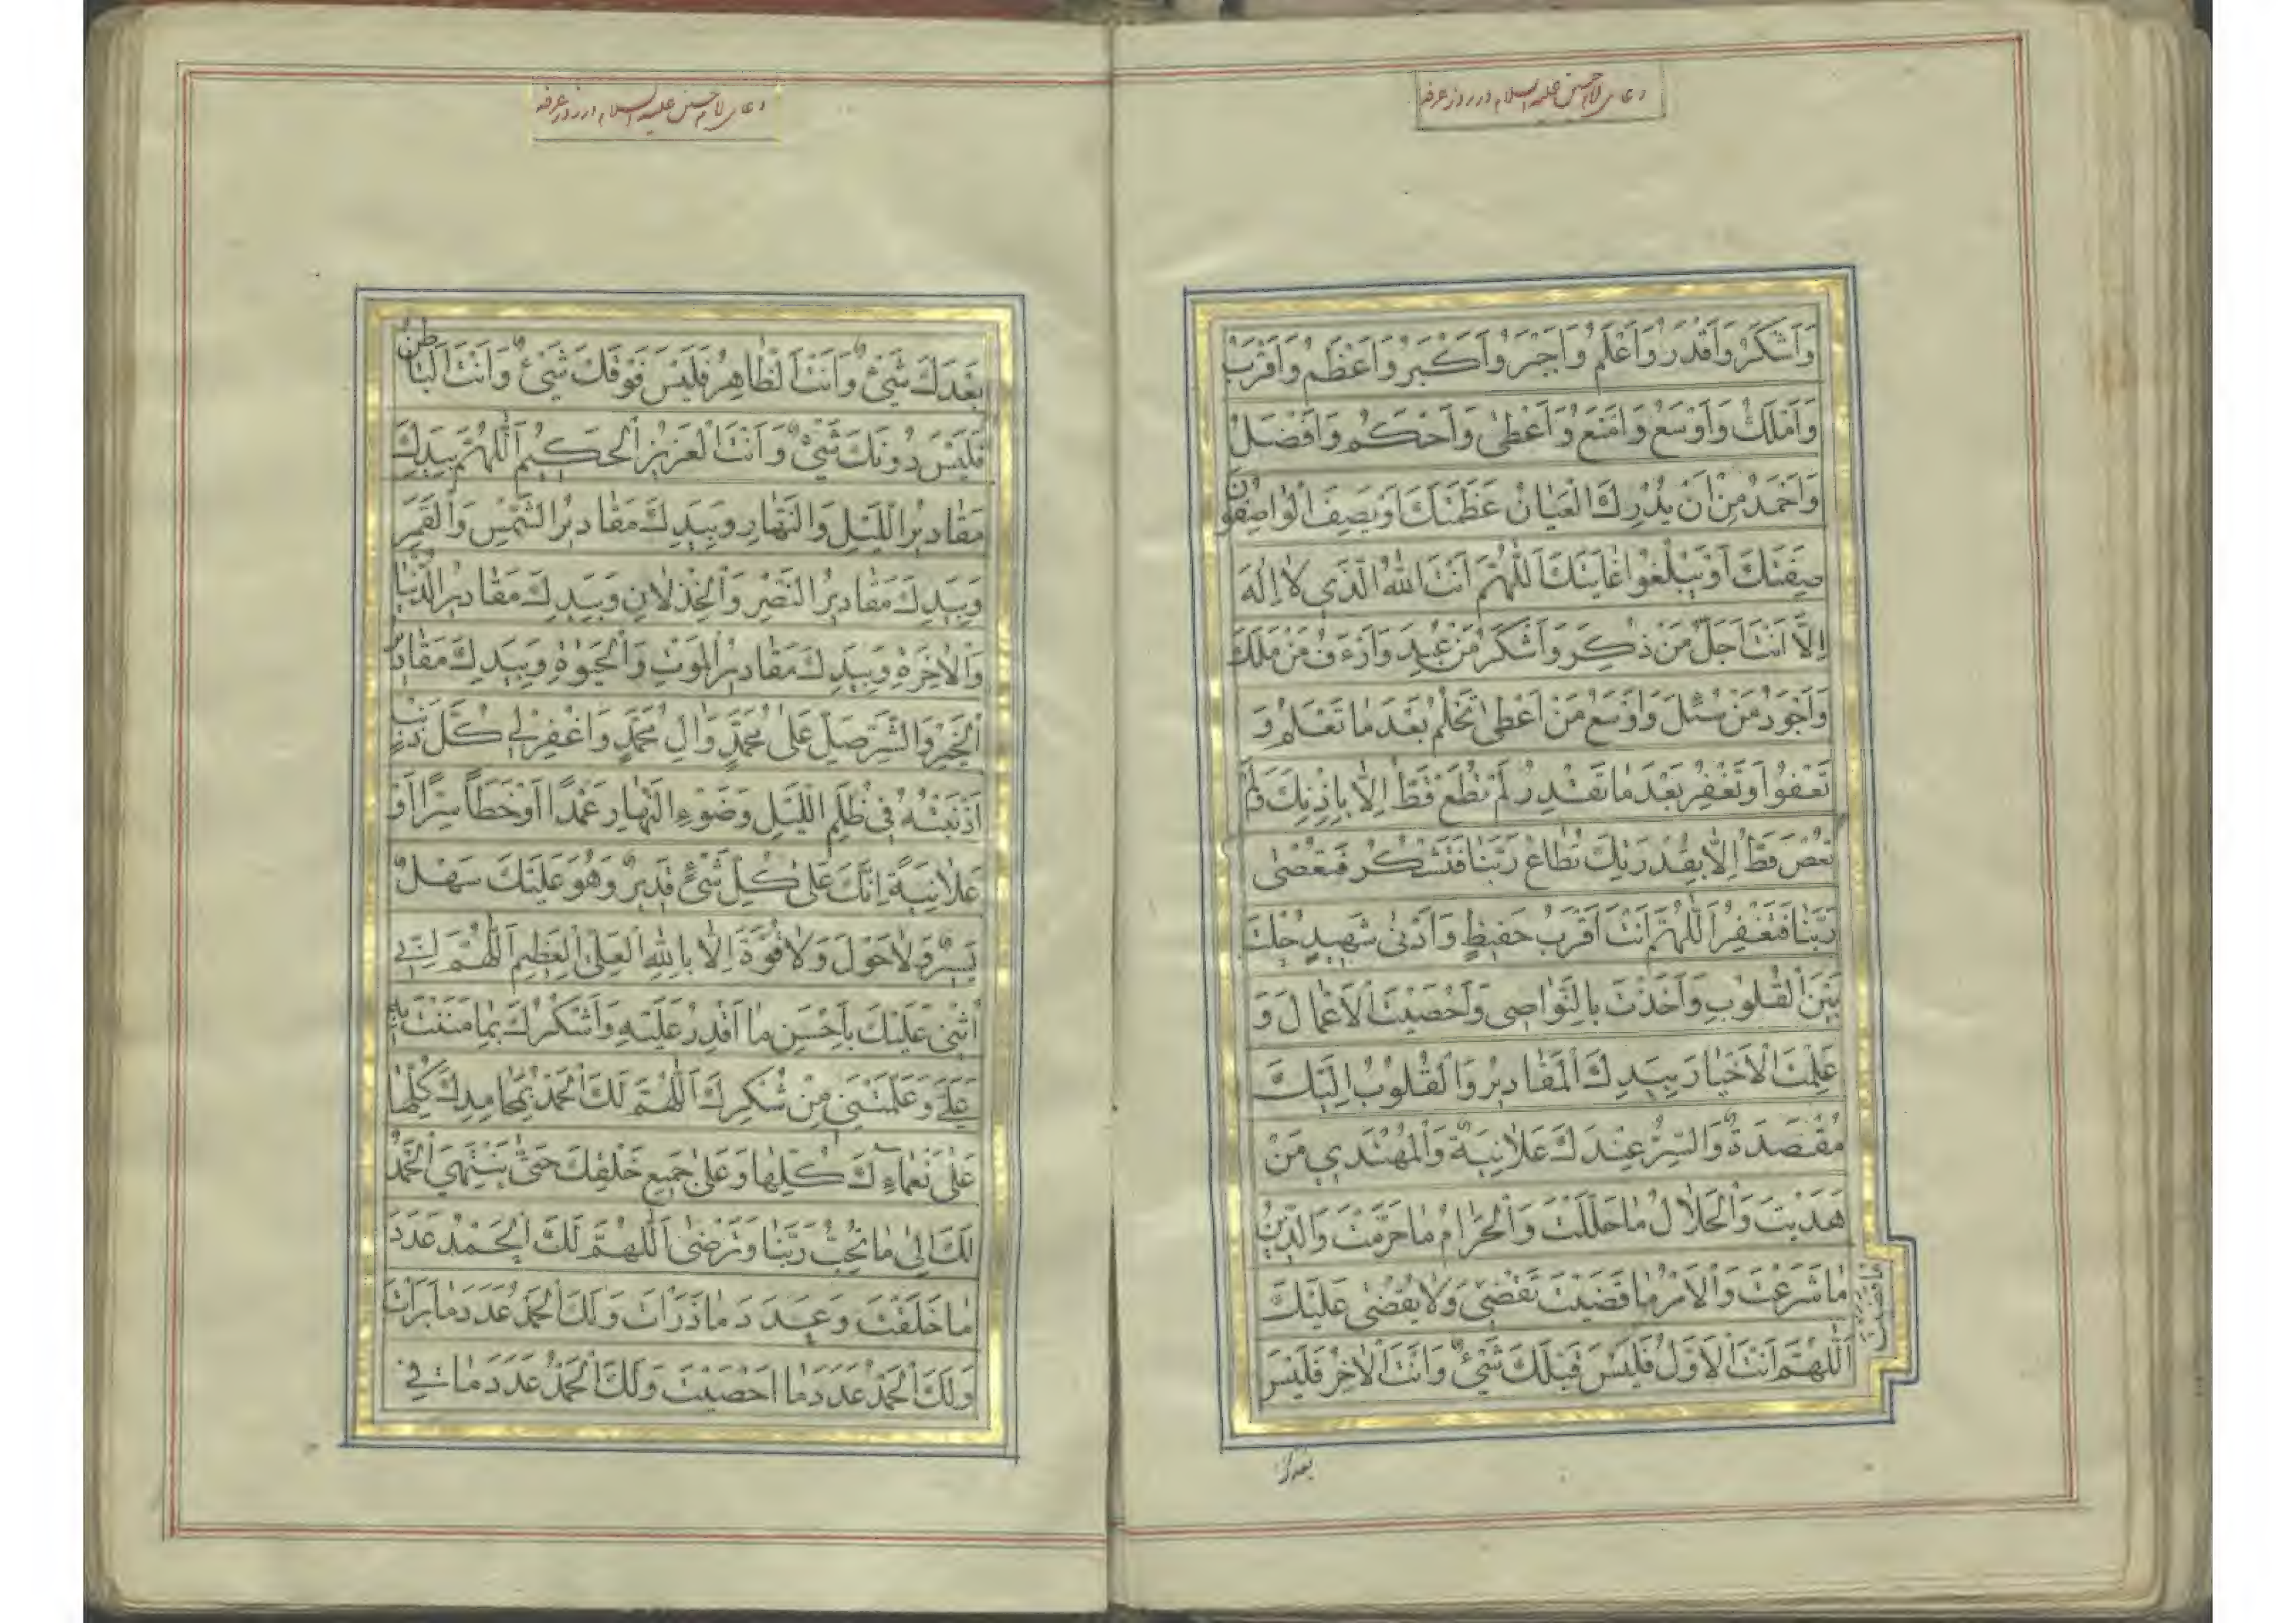 دعای امام حسین علیه السلام در روز عرفه
وَاَشْكَرُ وَاَقْدَرُ وَاَعْلَمُ وَاَجْبَرُ وَاَكْبَرُ وَاَعْظَمُ وَاَقْرَبُ
وَاَمْلَكُ وَاَوْسَعُ وَاَمْنَعُ وَاَعْطىٰ وَاَحْكَمُ وَاَفْضَلُ
وَاَحْمَدُ مِنْ اَنْ يُدْرِكَ الْعَيٰانُ عَظَمَتَكَ اَوْ يَصِفَ الْوٰاصِفُونَ
صِفَتَكَ اَوْ يَبْلُغُوا غٰايَتَكَ اَللّٰهُمَّ اَنْتَ اللهُ الَّذي لاٰ اِلٰهَ
اِلاّٰ اَنْتَ اَجَلُّ مَنْ ذُكِرَ وَاَشْكَرُ مَنْ عُبِدَ وَاَرْءَفُ مَنْ مَلَكَ
وَاَجْوَدُ مَنْ سُئِلَ وَاَوْسَعُ مَنْ اَعْطىٰ تَحْلُمُ بَعْدَ مٰا تَعْلَمُ وَ
تَعْفُوا وَتَغْفِرُ بَعْدَ مٰا تَقْدِرُ لَمْ تُطَعْ قَطُّ اِلاّٰ بِاِذْنِكَ وَلَمْ
تُعْصَ قَطُّ اِلاّٰ بِقُدْرَتِكَ تُطٰاعُ رَبَّنٰا فَتَشْكُرُ فَتُعْصىٰ
رَبَّنٰا فَتَغْفِرُ اَللّٰهُمَّ اَنْتَ اَقْرَبُ حَفيظٍ وَاَدْنىٰ شَهيدٍ حُلْتَ
بَيْنَ الْقُلُوبِ وَاَخَذْتَ بِالنَّوٰاصي وَاَحْصَيْتَ الْاَعْمٰالَ وَ
عَلِمْتَ الْاَخْبٰارَ بِيَدِكَ الْمَقٰاديرُ وَالْقُلُوبُ اِلَيْكَ
مُقْصَدَةٌ وَالسِّرُّ عِنْدَكَ عَلاٰنِيَةٌ وَالْمُهْتَدي مَنْ
هَدَيْتَ وَالْحَلاٰلُ مٰا حَلَّلْتَ وَالْحَرٰامُ مٰا حَرَّمْتَ وَالدّينُ
مٰا شَرَعْتَ وَالْاَمْرُ مٰا قَضَيْتَ تَقْضي وَلاٰ يُقْضىٰ عَلَيْكَ
مٰا قَضَيْتَ
اَللّٰهُمَّ اَنْتَ الْاَوَّلُ فَلَيْسَ قَبْلَكَ شَيْءٌ وَاَنْتَ الْاٰخِرُ فَلَيْسَ
بعدك
دعای امام حسین علیه السلام در روز عرفه
بَعْدَكَ شَيْءٌ وَاَنْتَ الظّٰاهِرُ فَلَيْسَ فَوْقَكَ شَيْءٌ وَاَنْتَ الْبٰاطِنُ
فَلَيْسَ دُونَكَ شَيْءٌ وَاَنْتَ الْعَزيزُ الْحَكيمُ اَللّٰهُمَّ بِيَدِكَ
مَقٰاديرُ اللَّيْلِ وَالنَّهٰارِ وَبِيَدِكَ مَقٰاديرُ الشَّمْسِ وَالْقَمَرِ
وَبِيَدِكَ مَقٰاديرُ النَّصْرِ وَالْخِذْلاٰنِ وَبِيَدِكَ مَقٰاديرُ الدُّنْيٰا
وَالْاٰخِرَةِ وَبِيَدِكَ مَقٰاديرُ الْمَوْتِ وَالْحَيٰوةِ وَبِيَدِكَ مَقٰاديرُ
الْخَيْرِ وَالشَّرِّ صَلِّ عَلىٰ مُحَمَّدٍ وَاٰلِ مُحَمَّدٍ وَاغْفِرْ لي كُلَّ ذَنْبٍ
اَذْنَبْتُهُ في ظُلَمِ اللَّيْلِ وَضَوْءِ النَّهٰارِ عَمْدًا اَوْ خَطَأً سِرًّا اَوْ
عَلاٰنِيَةً اِنَّكَ عَلىٰ كُلِّ شَيْءٍ قَديرٌ وَهُوَ عَلَيْكَ سَهْلٌ
يَسيرٌ وَلاٰ حَوْلَ وَلاٰ قُوَّةَ اِلاّٰ بِاللهِ الْعَلِيِّ الْعَظيمِ اَللّٰهُمَّ اِنّي
اُثْني عَلَيْكَ بِاَحْسَنِ مٰا اَقْدِرُ عَلَيْهِ وَاَشْكُرُكَ بِمٰا مَنَنْتَ بِهِ
عَلَيَّ وَعَلَّمْتَني مِنْ شُكْرِكَ اَللّٰهُمَّ لَكَ الْحَمْدُ بِمَحٰامِدِكَ كُلِّهٰا
عَلىٰ نَعْمٰاءِكَ كُلِّهٰا وَعَلىٰ جَميعِ خَلْقِكَ حَتّىٰ يَنْتَهِيَ الْحَمْدُ
لَكَ اِلىٰ مٰا تُحِبُّ رَبَّنٰا وَتَرْضىٰ اَللّٰهُمَّ لَكَ الْحَمْدُ عَدَدَ
مٰا خَلَقْتَ وَعَدَدَ مٰا ذَرَاْتَ وَلَكَ الْحَمْدُ عَدَدَ مٰا بَرَاْتَ
وَلَكَ الْحَمْدُ عَدَدَ مٰا اَحْصَيْتَ وَلَكَ الْحَمْدُ عَدَدَ مٰا في